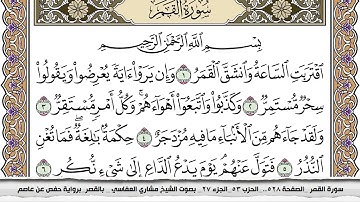 سُورَةُ القَمَرِ
بِسْمِ اللَّهِ الرَّحْمَٰنِ الرَّحِيمِ
اقْتَرَبَتِ السَّاعَةُ وَانشَقَّ الْقَمَرُ ١ وَإِن يَرَوْا ءَايَةً يُعْرِضُوا وَيَقُولُوا
سِحْرٌ مُّسْتَمِرٌّ ٢ وَكَذَّبُوا وَاتَّبَعُوا أَهْوَاءَهُمْ وَكُلُّ أَمْرٍ مُّسْتَقِرٌّ ٣
وَلَقَدْ جَاءَهُم مِّنَ الْأَنبَاءِ مَا فِيهِ مُزْدَجَرٌ ٤ حِكْمَةٌ بَالِغَةٌ فَمَا تُغْنِ
النُّذُرُ ٥ فَتَوَلَّ عَنْهُمْ يَوْمَ يَدْعُ الدَّاعِ إِلَىٰ شَيْءٍ نُّكُرٍ ٦
سورة القمر الصفحة ٥٢٨ .. الحزب ٥٣ .. الجزء ٢٧ بصوت الشيخ مشاري العفاسي .. بالقصر برواية حفص عن عاصم